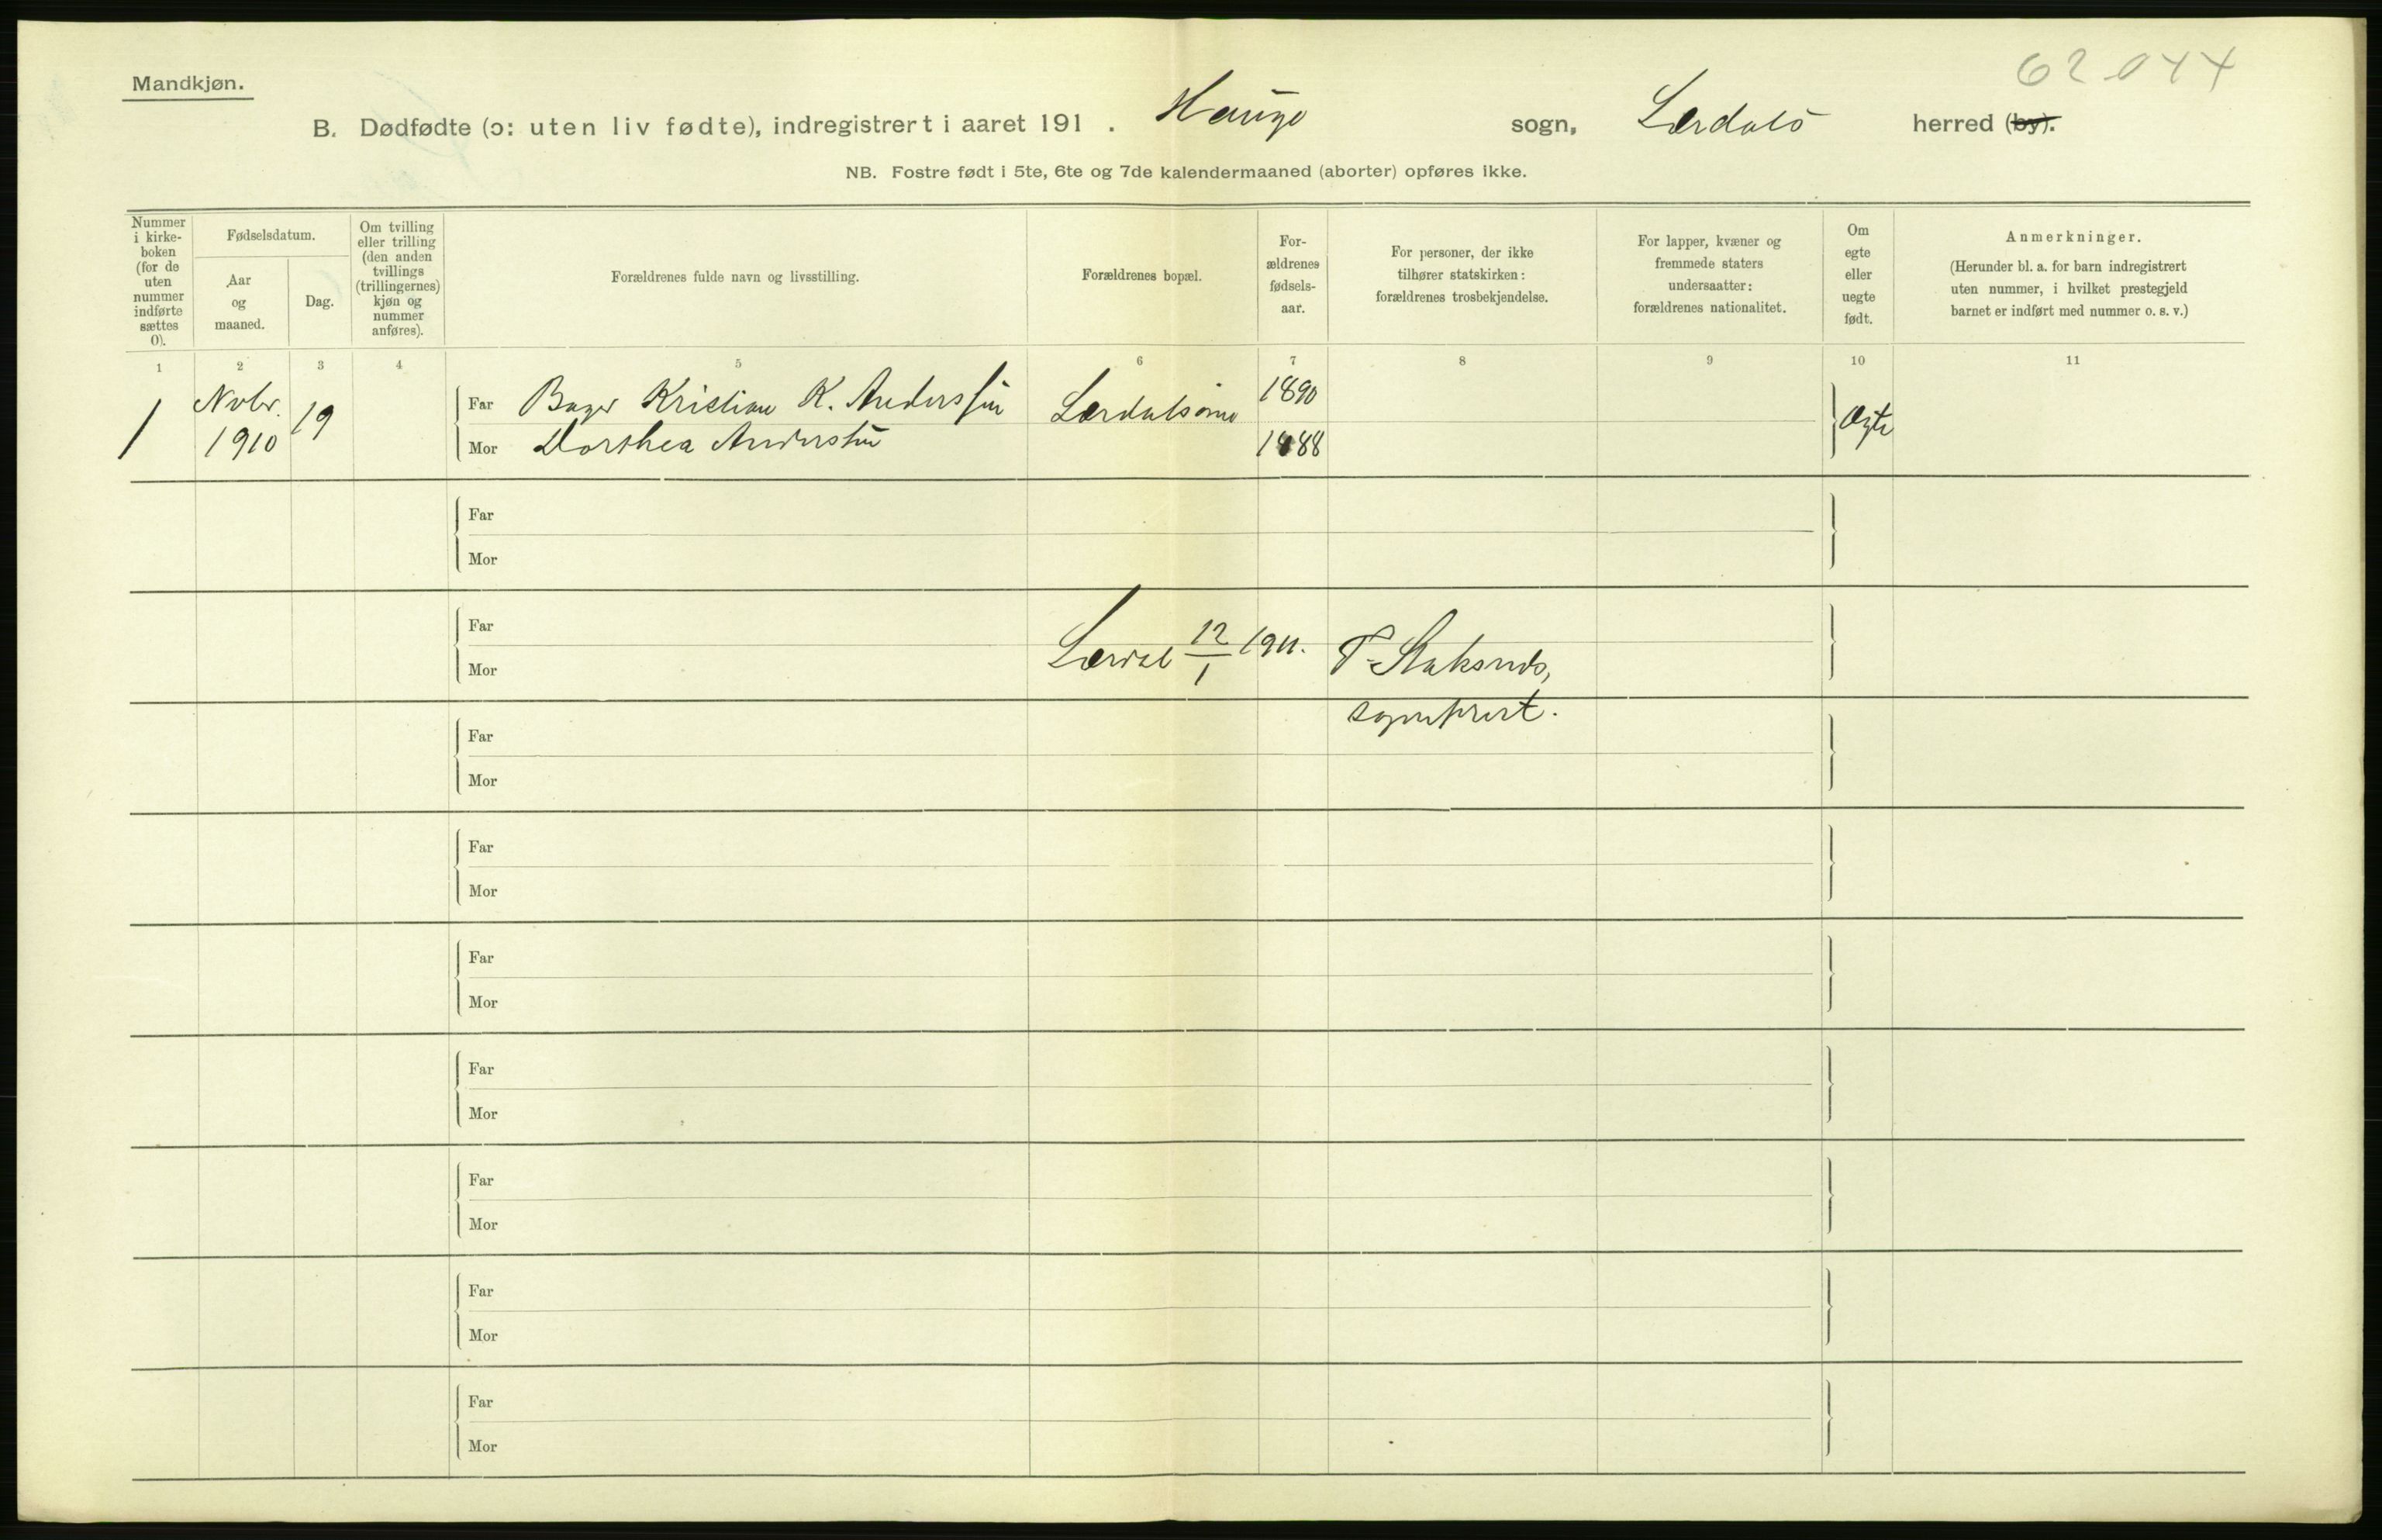 62 044
Mandkjøn.
B. Dødfødte (ɔ: uten liv fødte), indregistrert i aaret 191 . Hauge sogn, Lærdals herred (by).
NB. Fostre født i 5te, 6te og 7de kalendermaaned (aborter) opføres ikke.
Nummer i kirke-boken (for de uten nummer indførte sættes 0).
Fødselsdatum.
Aar og maaned.
Dag.
Om tvilling eller trilling (den anden tvillings (trillingernes) kjøn og nummer anføres).
Forældrenes fulde navn og livsstilling.
Forældrenes bopæl.
For-ældrenes fødsels-aar.
For personer, der ikke tilhører statskirken: forældrenes trosbekjendelse.
For lapper, kvæner og fremmede staters undersaatter: forældrenes nationalitet.
Om egte eller uegte født.
Anmerkninger.
(Herunder bl. a. for barn indregistrert uten nummer, i hvilket prestegjeld barnet er indført med nummer o. s. v.)
1 2 3 4 5 6 7 8 9 10 11
1 Nvbr. 1910 19 Far Bager Kristian K. Anderssen Lærdalsøren 1890 Ægte
Mor Dorthea Anderssen 1888
Far
Mor
Far
Mor
Lærdal 12/1 1911.
sogneprest.
Far
Mor
Far
Mor
Far
Mor
Far
Mor
Far
Mor
Far
Mor
Far
Mor